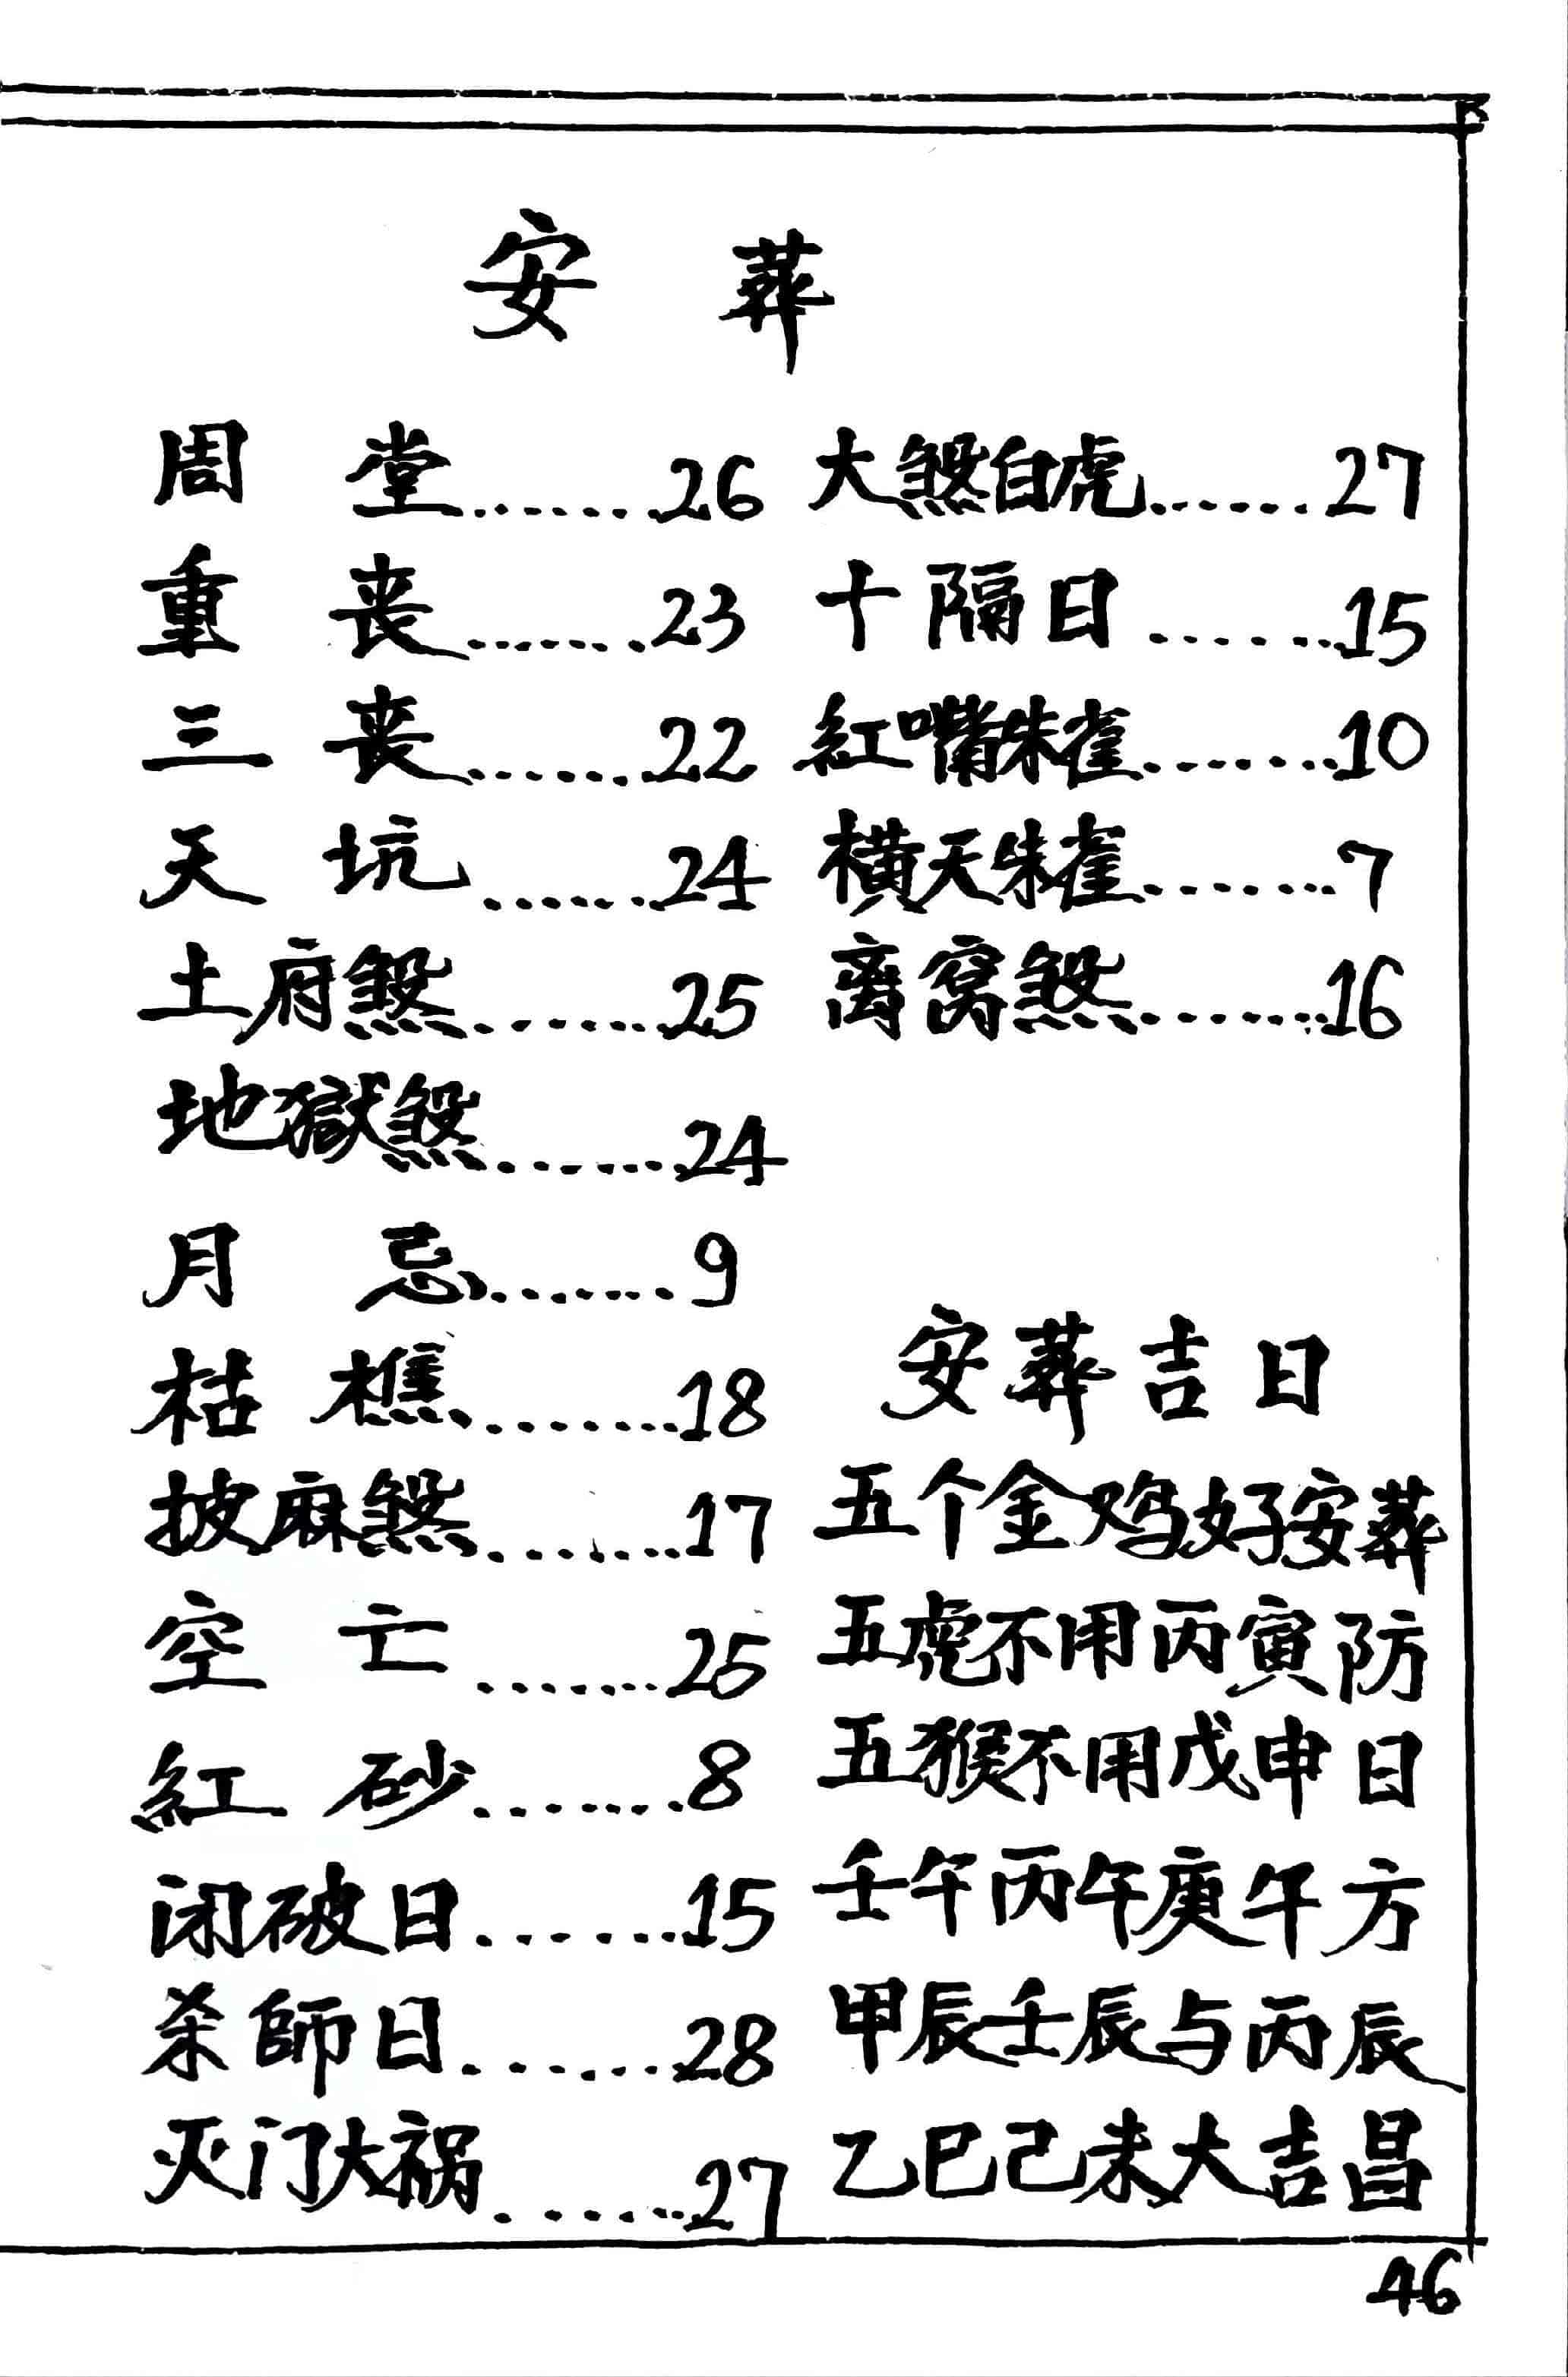 安 葬
周 堂.......26
重 丧.......23
三 丧.......22
天 坑.......24
土府煞.......25
地獄煞.......24
月 忌.......9
枯 樵.......18
披麻煞.......17
空 亡.......25
紅 砂.......8
闭破日.......15
杀師日.......28
灭门大祸.......27
大煞白虎......27
十隔日.......15
紅嘴朱雀.......10
横天朱雀.......7
离窝煞.......16
安葬吉日
五个金鸡好安葬
五虎不用丙寅防
五猴不用戊申日
壬午丙午庚午方
甲辰壬辰与丙辰
乙巳己未大吉昌
46